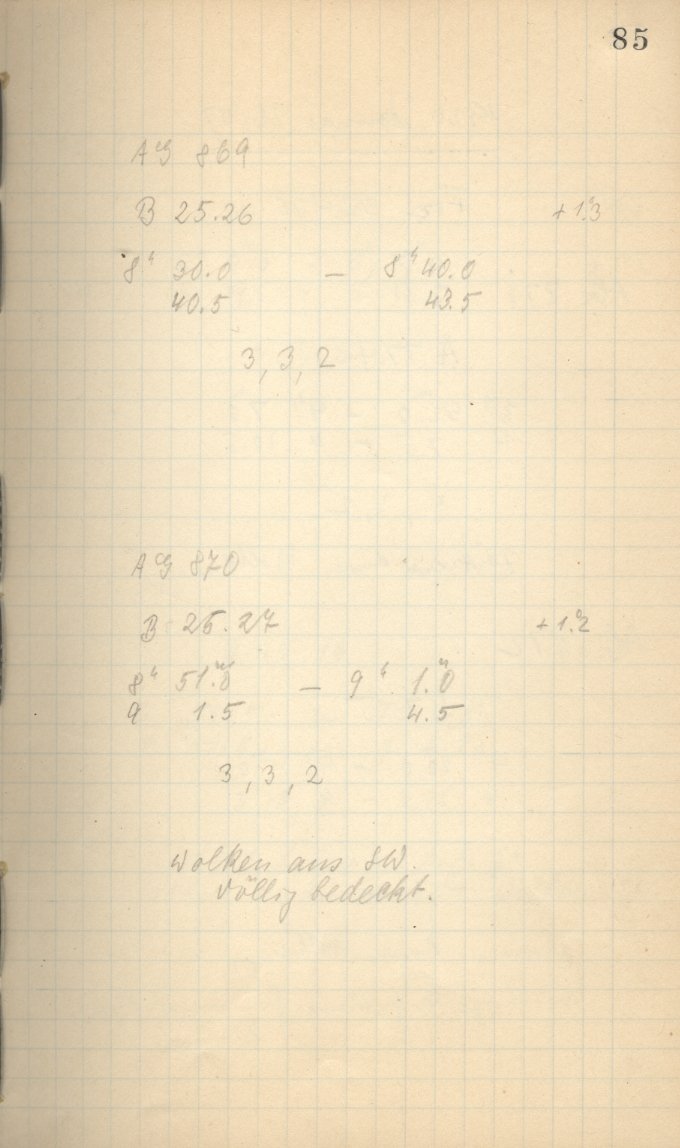 85
AG 869
B 25.26 +1.ᵐ3
8ʰ 30.0 — 8ʰ 40.0
40.5 43.5
3, 3, 2
AG 870
B 26.27 +1.ᵐ2
8ʰ 51.ᵐ0 — 9ʰ 1.ᵐ0
9 1.5 4.5
3, 3, 2
Wolken aus SW.
Völlig bedeckt.